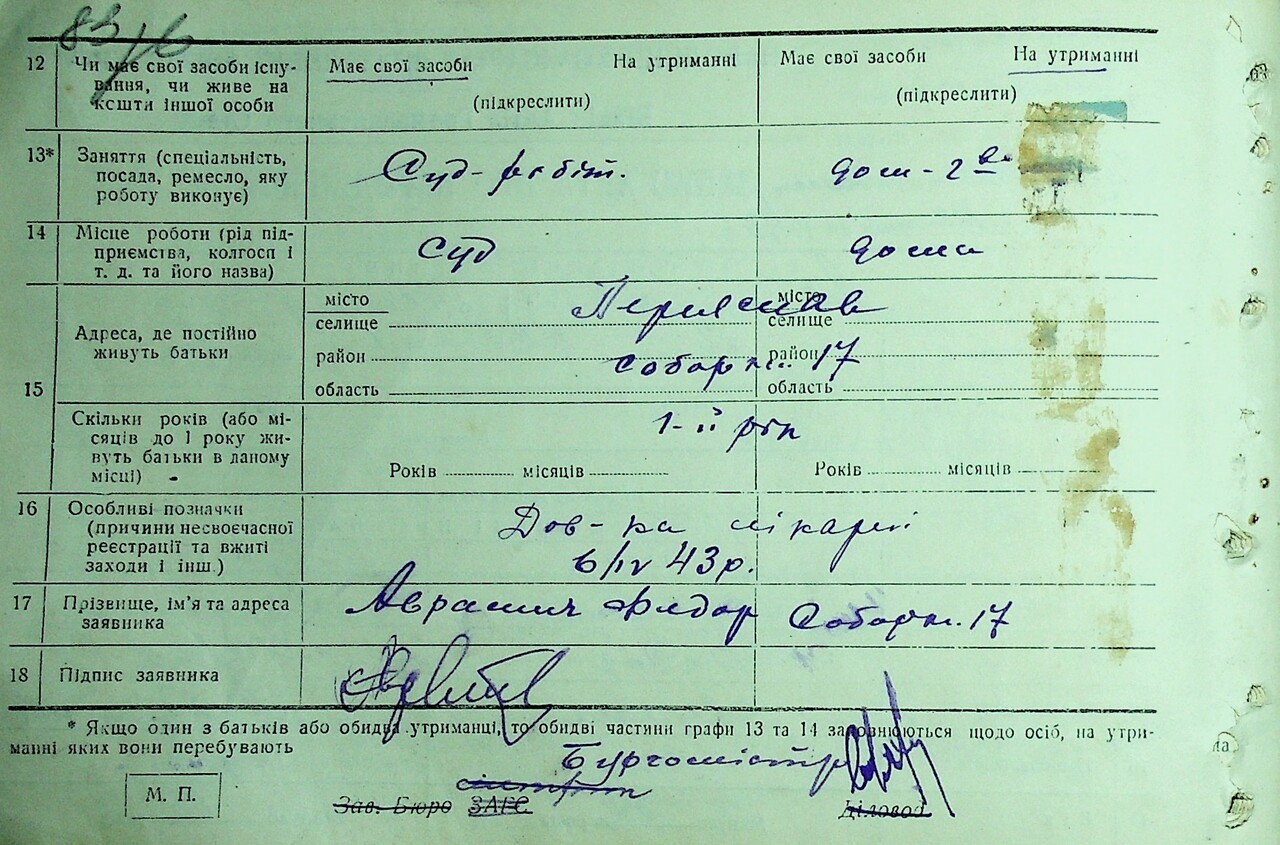 83/6
12 Чи має свої засоби існу- Має свої засоби На утриманні Має свої засоби На утриманні
вання, чи живе на
кошти іншої особи (підкреслити) (підкреслити)
13* Заняття (спеціальність, Суд-робіт. дом-2
посада, ремесло, яку
роботу виконує)
14 Місце роботи (рід під- Суд дома
приємства, колгосп і
т. д. та його назва)
15 Адреса, де постійно
живуть батьки
місто Переяслав місто
селище селище
район Соборн. 17 район
область область
Скільки років (або мі- 1-ій рік
сяців до 1 року жи-
вуть батьки в даному
місці) Років місяців Років місяців
16 Особливі позначки Дов-ка лікарні
(причини несвоєчасної 6/IV 43 р.
реєстрації та вжиті
заходи і інш.)
17 Прізвище, ім'я та адреса Аврамич Федор Соборн. 17
заявника
18 Підпис заявника
* Якщо один з батьків або обидва утриманці, то обидві частини графи 13 та 14 заповнюються щодо осіб, на утри-
манні яких вони перебувають
Бургомістр
М. П. Зав. Бюро ЗАГС Діловод